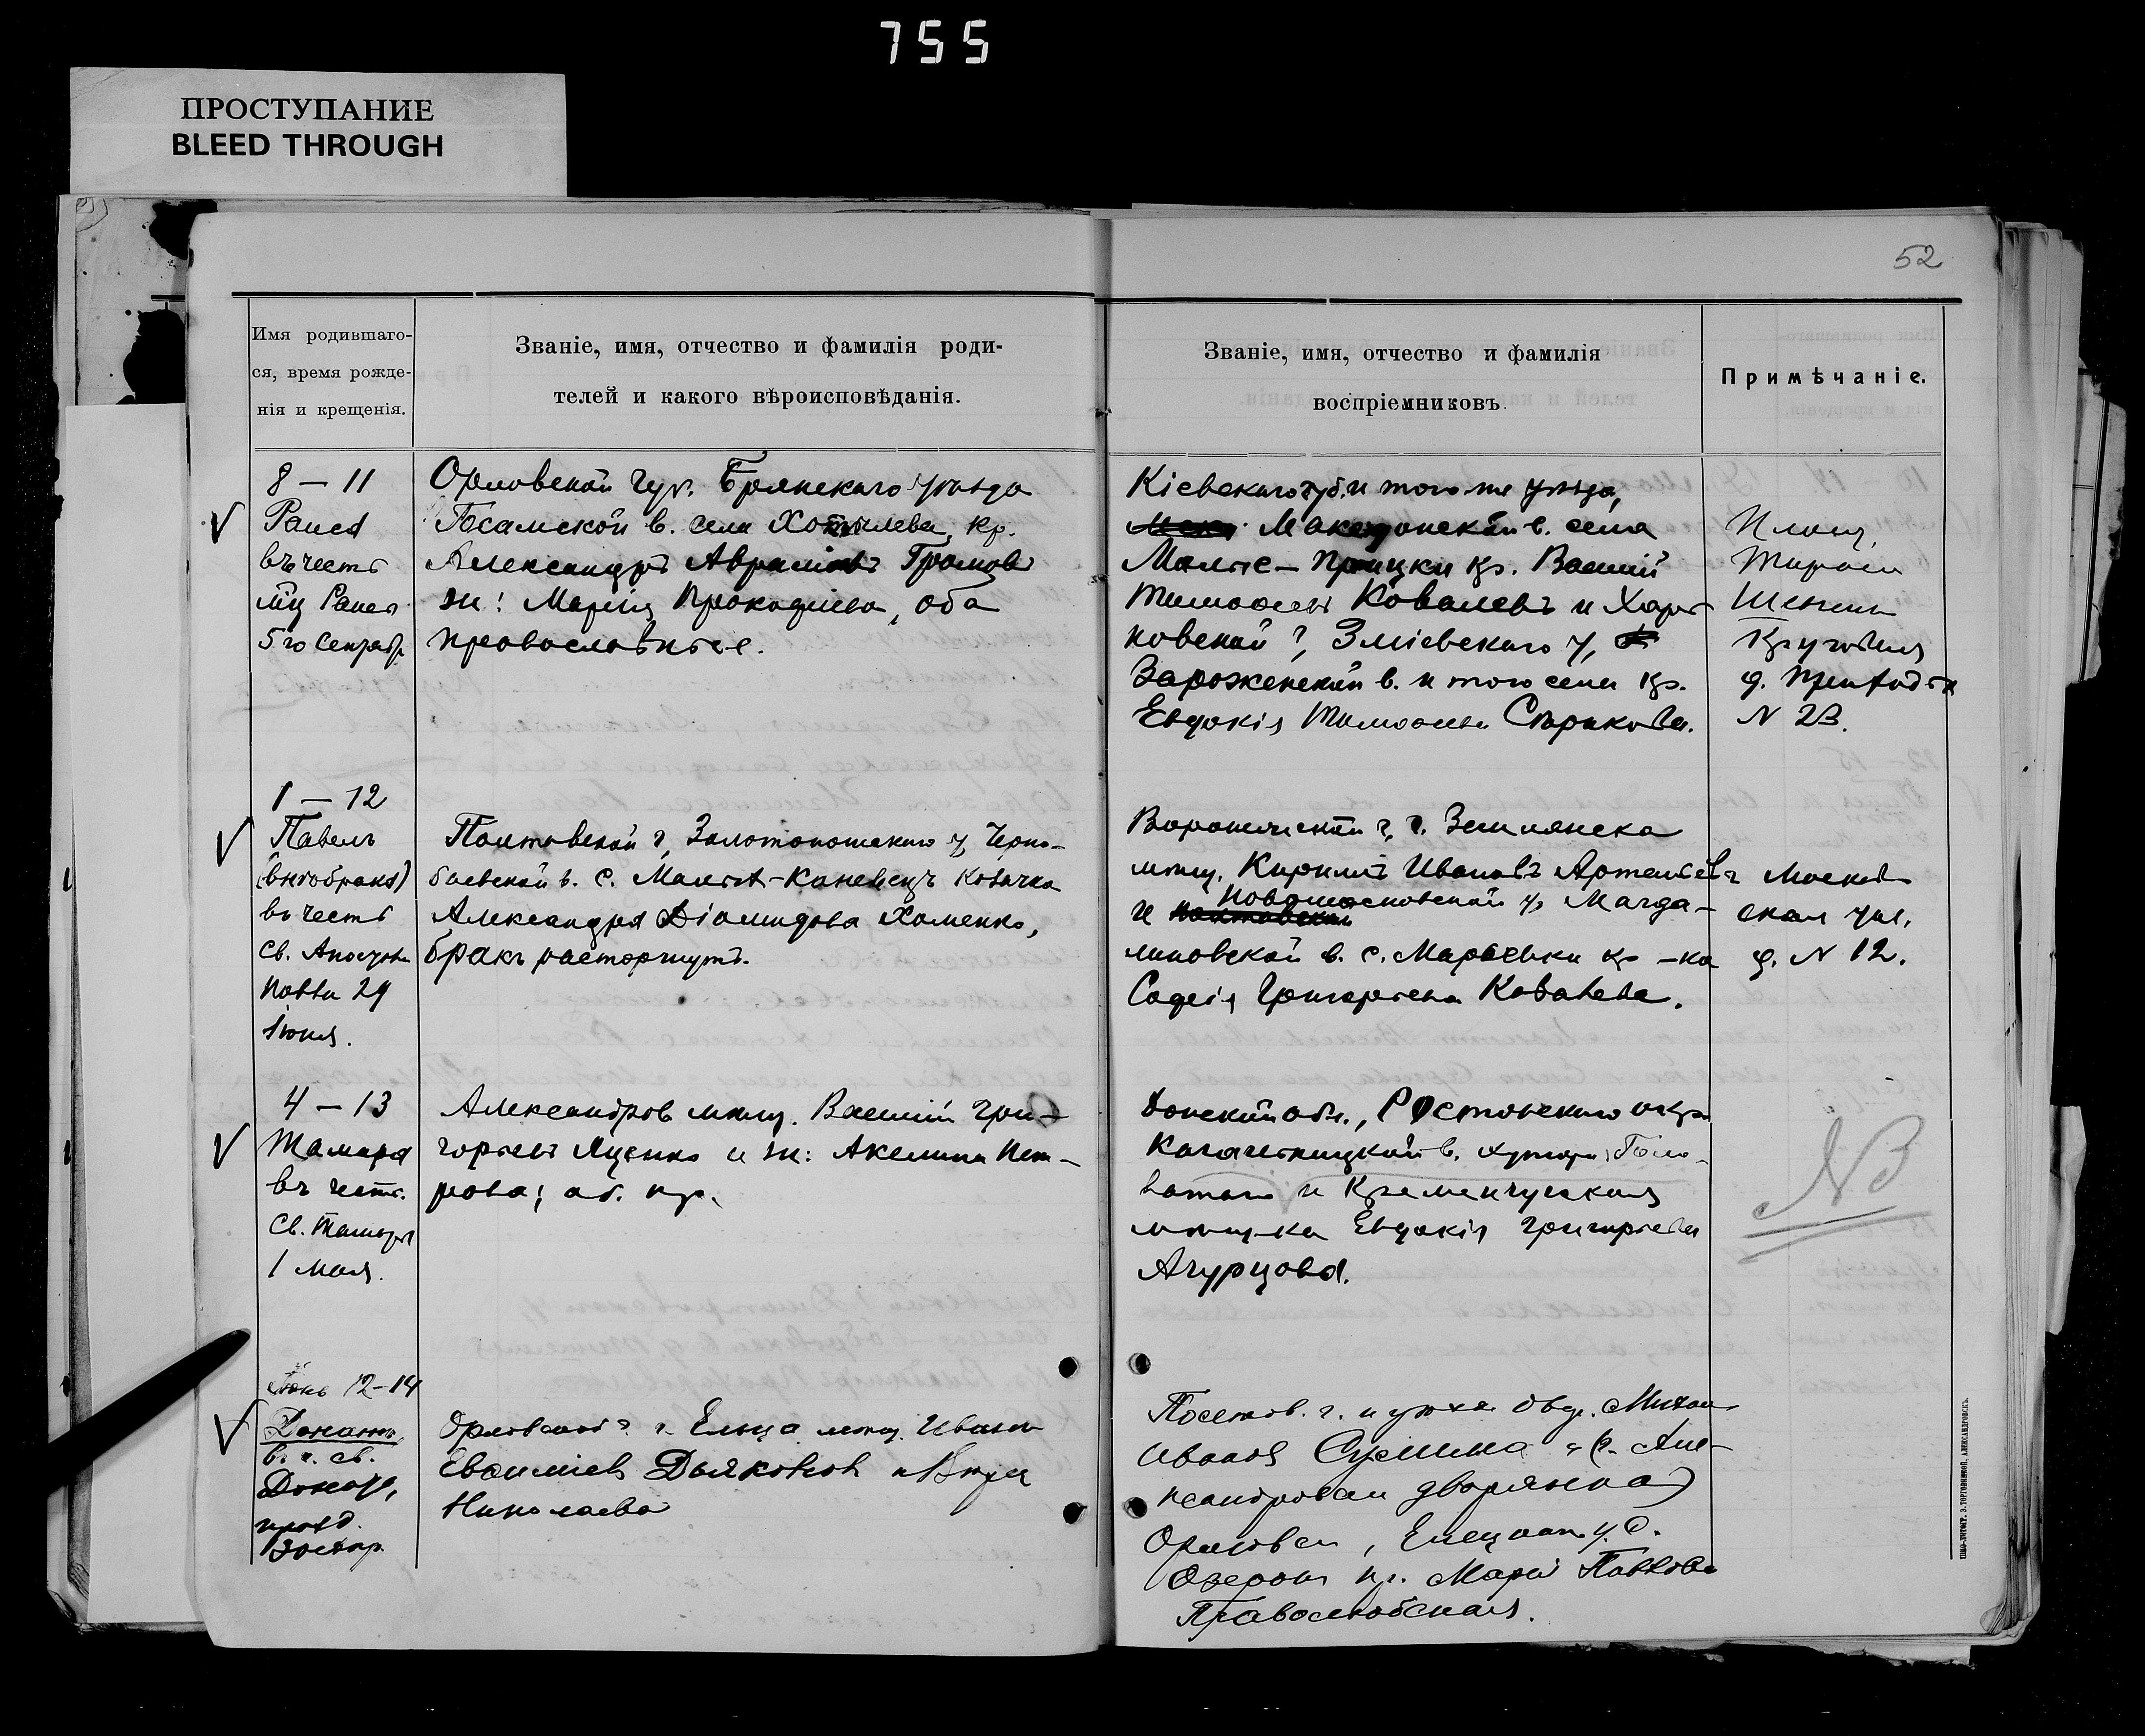 755
ПРОСТУПАНИЕ
BLEED THROUGH
52
Имя родившаго-
ся, время рожде-
нія и крещенія.
Званіе, имя, отчество и фамилія роди-
телей и какого вѣроисповѣданія.
Званіе, имя, отчество и фамилія
воспріемниковъ.
Примѣчаніе.
8 — 11
Раиса
въ честь
мц Раисы
5го Сентябр
Орловской губ. Брянскаго уѣзда
в. села Хотылева, кр.
Александръ Аврамовъ Громовъ
ж: Марія Прокофіева, оба
православные.
Кіевской губ. и того же уѣзда,
Македонской в. села
кр. Василій
Тимофеевъ Ковалевъ и Харь-
ковской г, Зміевскаго у,
Зароженской в. и того села кр.
Евдокія Тимофеева Старикова.
Площ.
д.
N 23.
1 — 12
Павелъ
(внѣ брака)
въ честь
св. Апостола
Павла 29
Іюня.
Полтавской г, Золотоношскаго у, Черно-
баевской в. с. Малая-Каневецъ козачка
Александра Діомидова Хоменко,
бракъ расторгнутъ.
Воронежской г, г. Землянска
мѣщ. Кирилъ Ивановъ Артемьевъ
и Полтавской Новомосковской у, Магда-
линовской в. с. Марьевки кр-ка
Софія Григорьева Ковалева.
Москов-
ская ул,
д. N 12.
4 — 13
Тамара
въ честь
св. Тамары
1 Мая.
Александров мѣщ. Василій Гри-
горьевъ Яценко и ж: Акелина Пет-
рова; об. пр.
Донской обл., Ростовскаго окр.
Кагальницкой в. хутора Голо-
ватаго и Кременчугская
мѣщ-ка Евдокія Григорьева
Агурцова.
NB
Іюнь 12-14
Донатъ
в. ч. св.
Орловской г. г. Ельца мѣщ. Иванъ
Евфиміевъ Дьяконовъ и Вѣра
Николаева
Михаил
Иванов
(г. Але-
ксандровска дворянка)
Орловск , Елецкаго у. с.
кр. Марія Павлова
Православная.